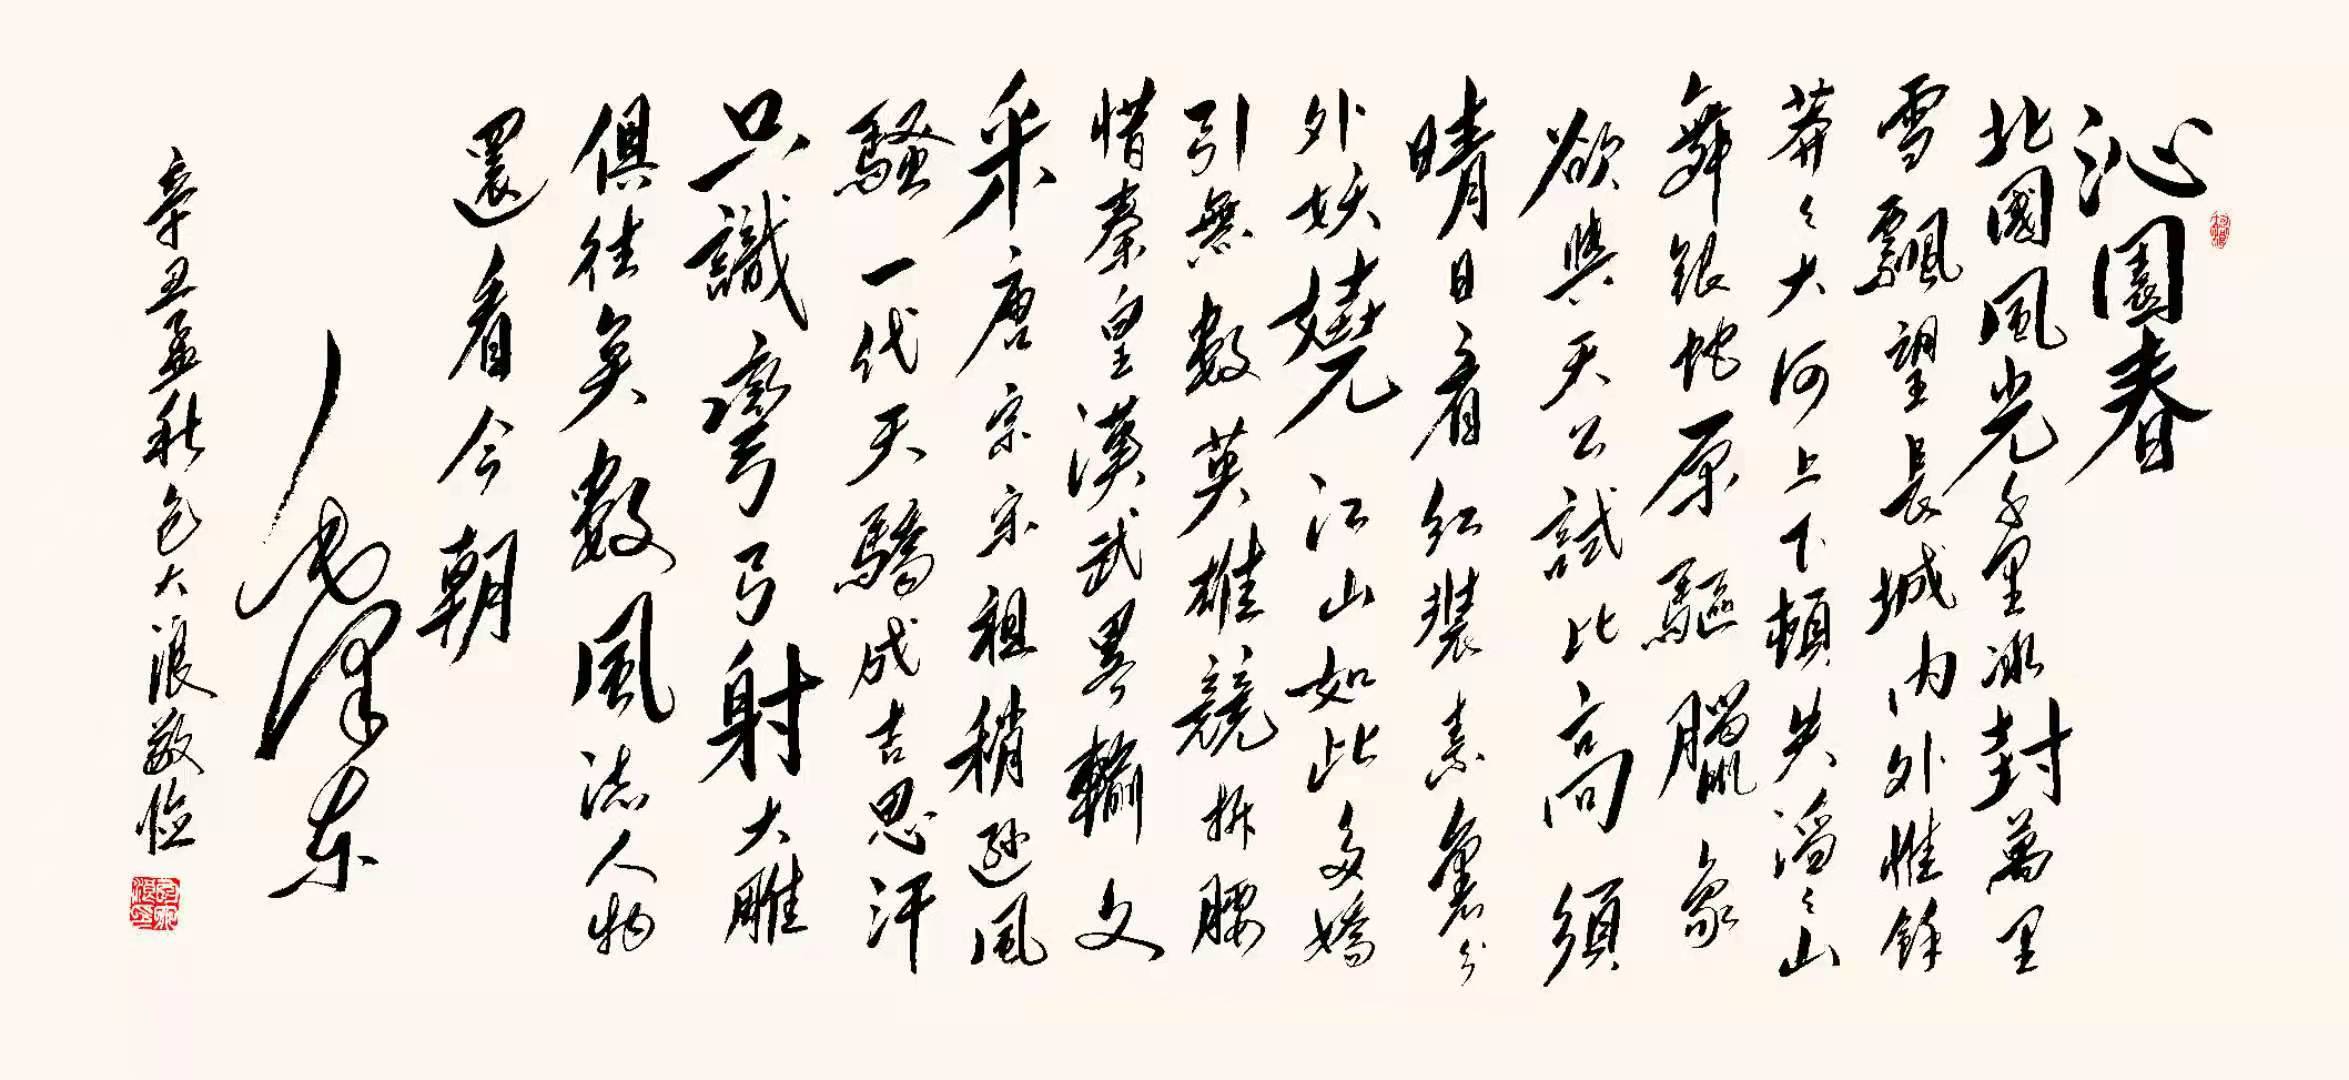 沁園春
北國風光千里冰封萬里
雪飄望長城内外惟餘
莽々大河上下頓失滔々山
舞銀蛇原驅臘象
欲與天公試比高須
晴日看红裝素裹分
外妖嬈江山如此多嬌
引無數英雄競折腰
惜秦皇漢武畧輸文
采唐宗宋祖稍遜風
騷一代天驕成吉思汗
只識彎弓射大雕
俱往矣數風流人物
還看今朝
毛澤东
辛丑孟秋包大浪敬临